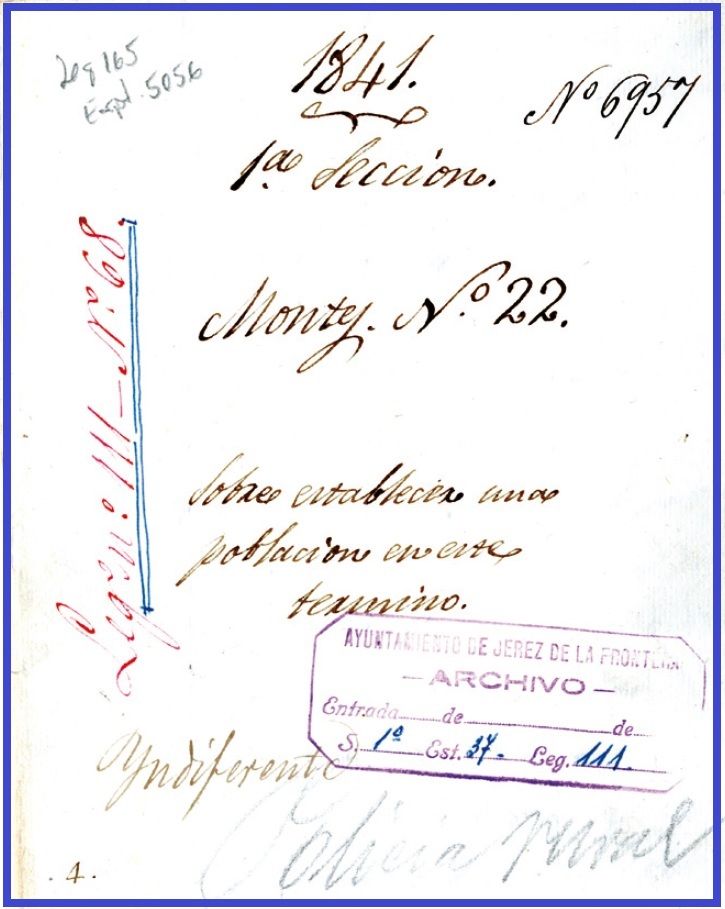 Leg 165
Expd. 5056
1841.
Nº 6957
1ª Sección.
Legºnº. 111 - Nº 68.
Montg. Nº. 22.
Sobre establecer una
poblacion en este
termino.
AYUNTAMIENTO DE JEREZ DE LA FRONTERA
- ARCHIVO -
Entrada de de
S. 1º Est. 37. Leg. 111.
Yndiferente
Policia rural
. 4 .